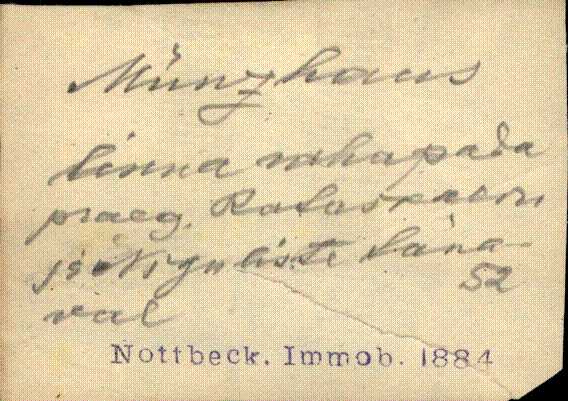 Münzhaus
linna rahapada
praeg. Rataskaevu
ja Niguliste täna-
val 52
Nottbeck. Immob. 1884